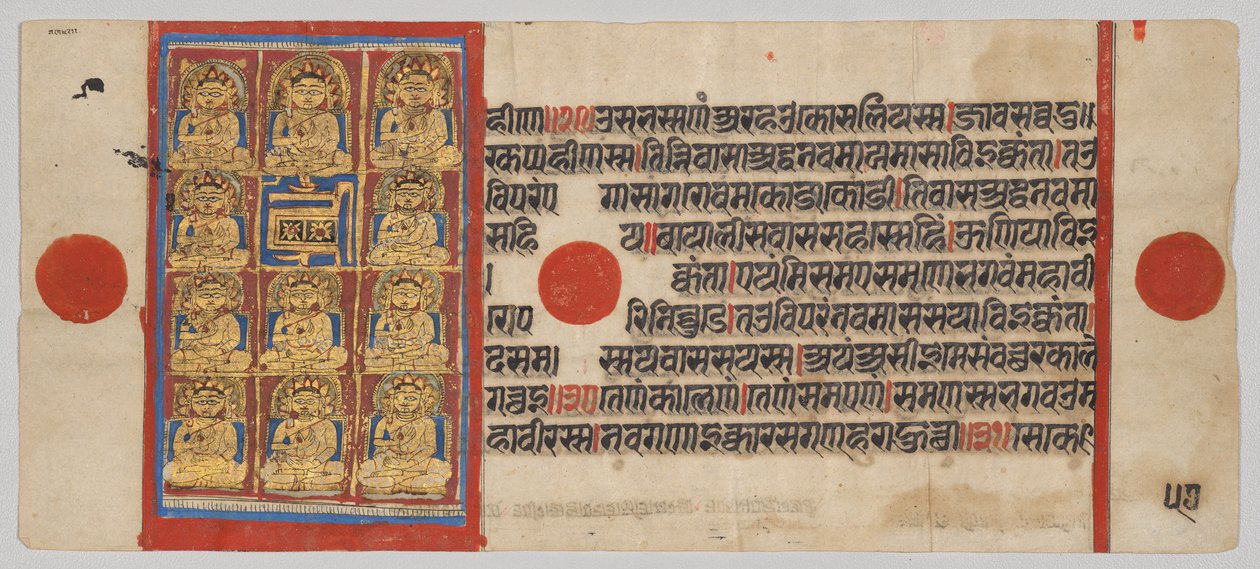 हीणा॥२०॥उसभस्सणं अरहउकोसलियस्स।जावसव्वदु॥
रकप्पहीणस्स।तिन्निवासाअद्धनवमायमासाविइक्कंता।तउ
विपरंए गासागरोवमकोडाकोडी।तिवासअद्धनवमा
सहि य॥बायालीसवाससहस्सेहिं।ऊणियाविइ
। क्कंता।एयंमिसमएसमणेभगवंमहावी
रेप रिनिव्वुडे।तउविपरंनवमाससयाविइक्कंता।
दसम। स्सयवाससयस्स।अयंअसीइमेसंवच्छरकाले
गच्छइ॥३०तेणंकालेणं।तेणंसमएणं।समणस्सभगवउम
हावीरस्स।नवगणाइक्कारसगणहराहुच्छा॥३१॥सेके